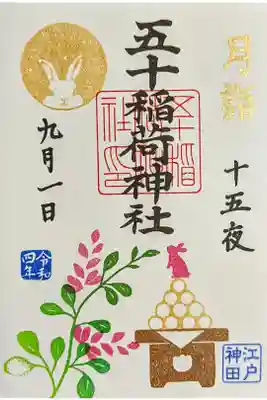 月詣
十五夜
五十稲荷神社
九月一日
令和
四年
江戸
神田